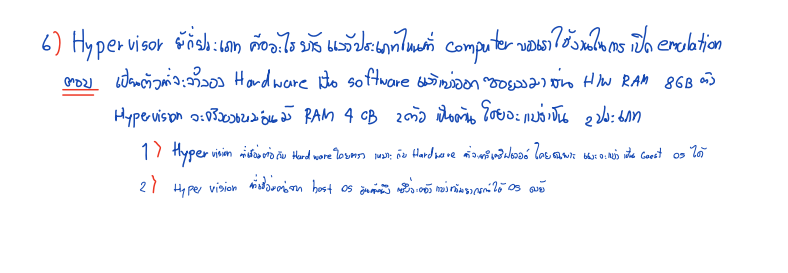 6) Hypervisor มีกี่ประเภท คืออะไรบ้าง แล้วประเภทไหนที่ computer ของเราใช้งานในการเปิด emulation
ตอบ เป็นตัวที่จะจำลอง Hardware เป็น software แล้วแบ่งออก ซอยลงมา เช่น H/W RAM 8GB ตัว
Hypervision จะจำลองเหมือนมี RAM 4 GB 2 ตัว เป็นต้น โดยจะแบ่งเป็น 2 ประเภท
1) Hypervision ที่เชื่อมต่อกับ Hardware โดยตรง เหมาะกับ Hardware ที่ โดยเฉพาะ และจะแบ่งเป็น Guest OS ได้
2) Hyper vision ที่เชื่อมต่อจาก host OS อีกทีหนึ่ง ให้ OS